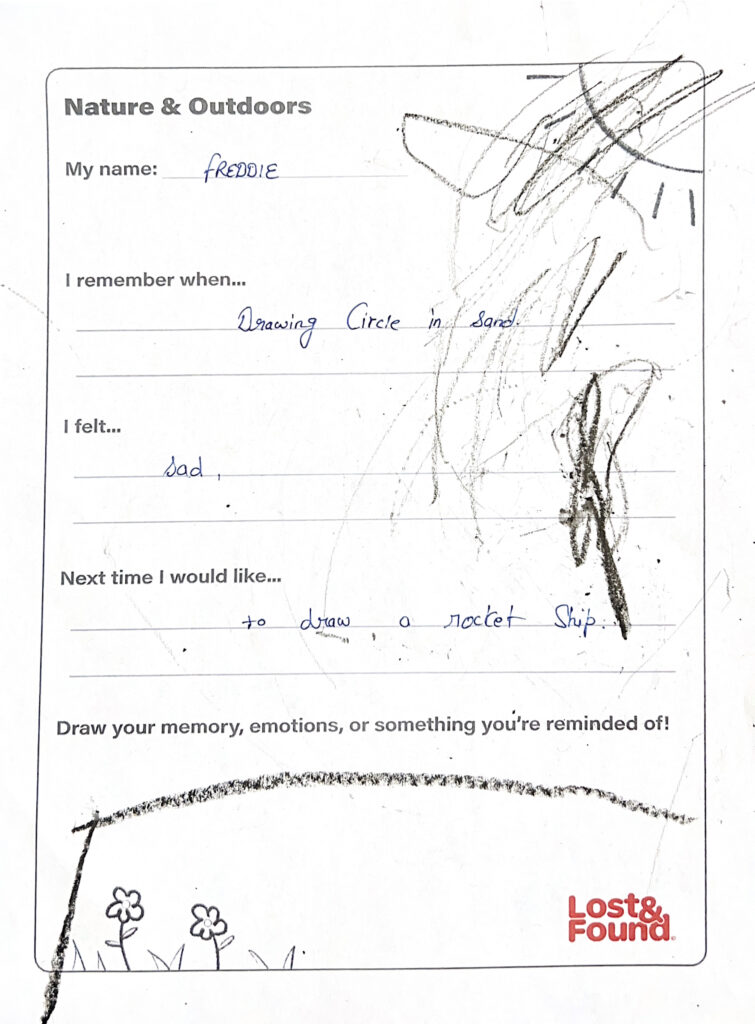 Nature & Outdoors
My name: fREDDIE
I remember when...
Drawing Circle in sand.
I felt...
sad,
Next time I would like...
to draw a rocket Ship.
Draw your memory, emotions, or something you're reminded of!
Lost&
Found